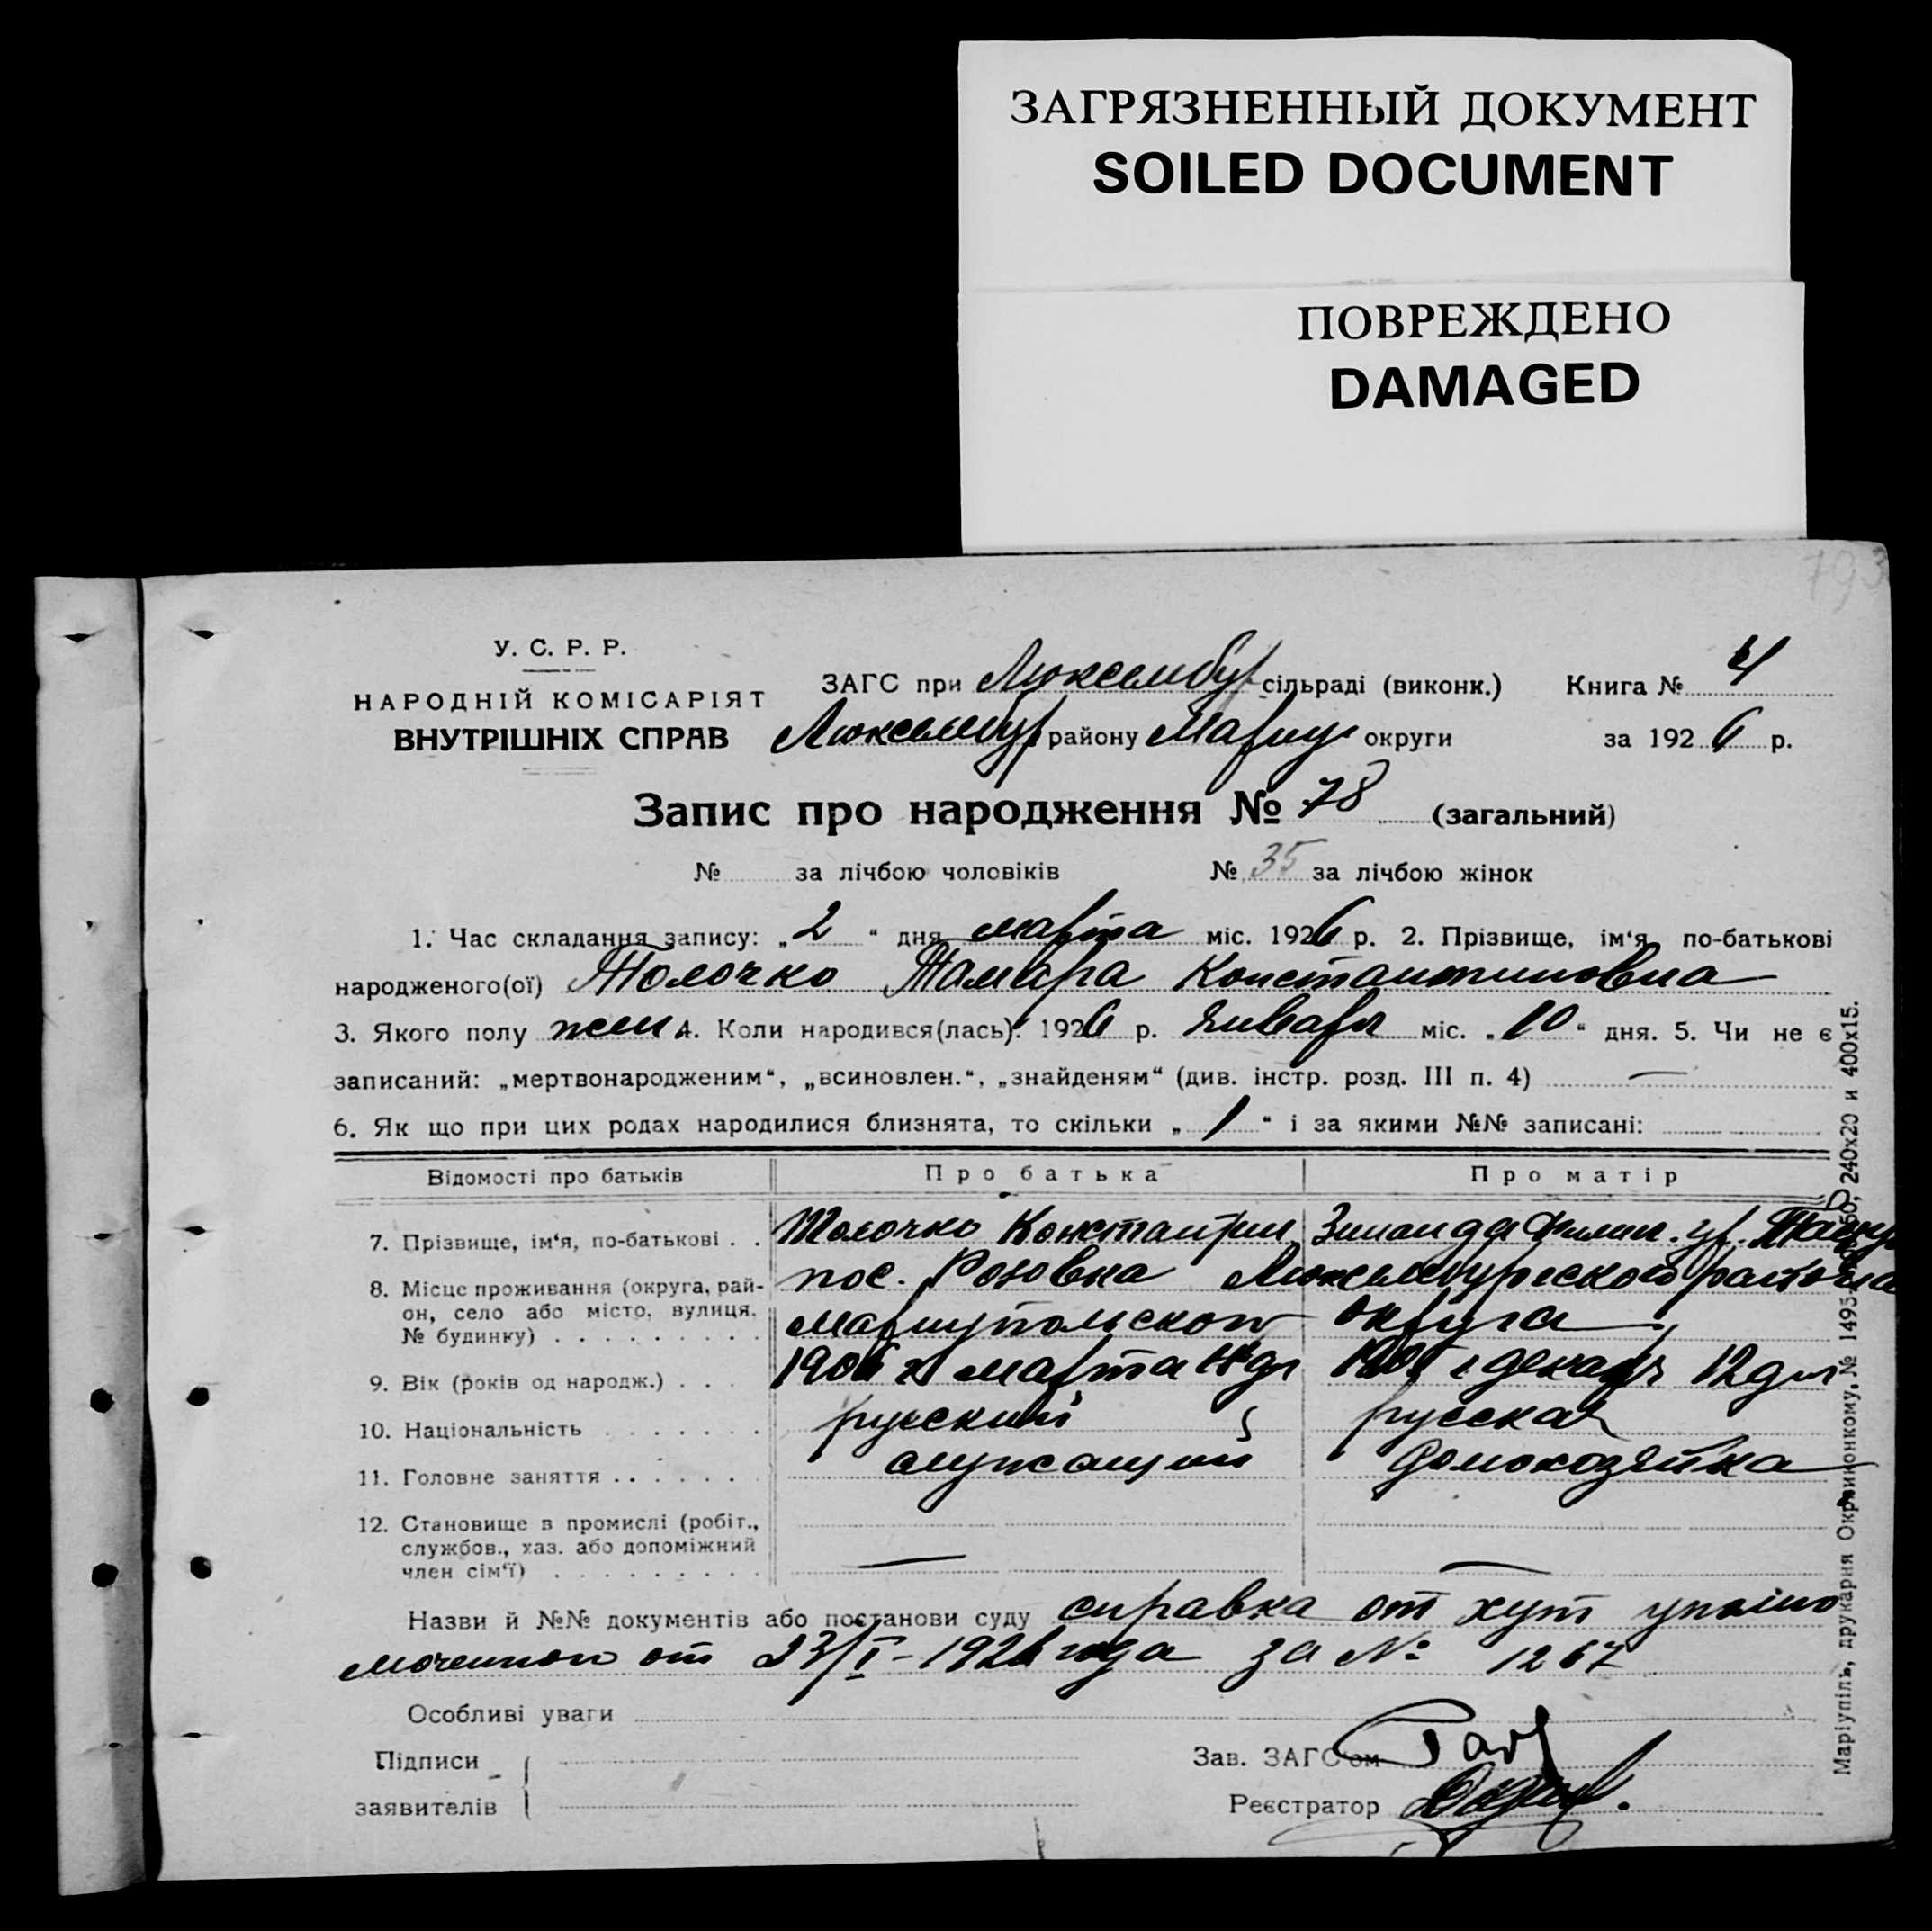 ЗАГРЯЗНЕННЫЙ ДОКУМЕНТ
SOILED DOCUMENT
ПОВРЕЖДЕНО
DAMAGED
793
У. С. Р. Р.
НАРОДНІЙ КОМІСАРІЯТ
ВНУТРІШНІХ СПРАВ
ЗАГС при Люксембур сільраді (виконк.) Книга № 4
Люксембур району Мариу округи за 1926 р.
Запис про народження № 78 (загальний)
№ за лічбою чоловіків № 35 за лічбою жінок
1. Час складання запису: „2“ дня марта міс. 1926 р. 2. Прізвище, ім‘я по-батькові
народженого(ої) Толочко Тамара Константиновна
3. Якого полу жен 4. Коли народився(лась): 1926 р. Январь міс. „10“ дня. 5. Чи не є
записаний: „мертвонародженим“, „всиновлен.“, „знайденям“ (див. інстр. розд. III п. 4) —
6. Як що при цих родах народилися близнята, то скільки „1“ і за якими №№ записані:
Відомості про батьків Про батька Про матір
7. Прізвище, ім‘я, по-батькові . . Толочко Константин Зинаида Филип. ур.
8. Місце проживання (округа, рай-
он, село або місто, вулиця,
№ будинку)
пос. Розовка Люксембургского района
Мариупольского округа
9. Вік (років од народж.) . . . марта дня 12 дня
10. Національність русский русская
11. Головне заняття служащий домохозяйка
12. Становище в промислі (робіт.,
службов., хаз. або допоміжний
член сім‘ї) — —
Назви й №№ документів або постанови суду справка от хут уполно
моченного от 23/I-1926 года за № 1267
Особливі уваги
Підписи
заявителів
Зав. ЗАГС‘ом
Реєстратор
Маріупіль, друкарня Окрвиконкому, № 1495 240x20 и 400x15.